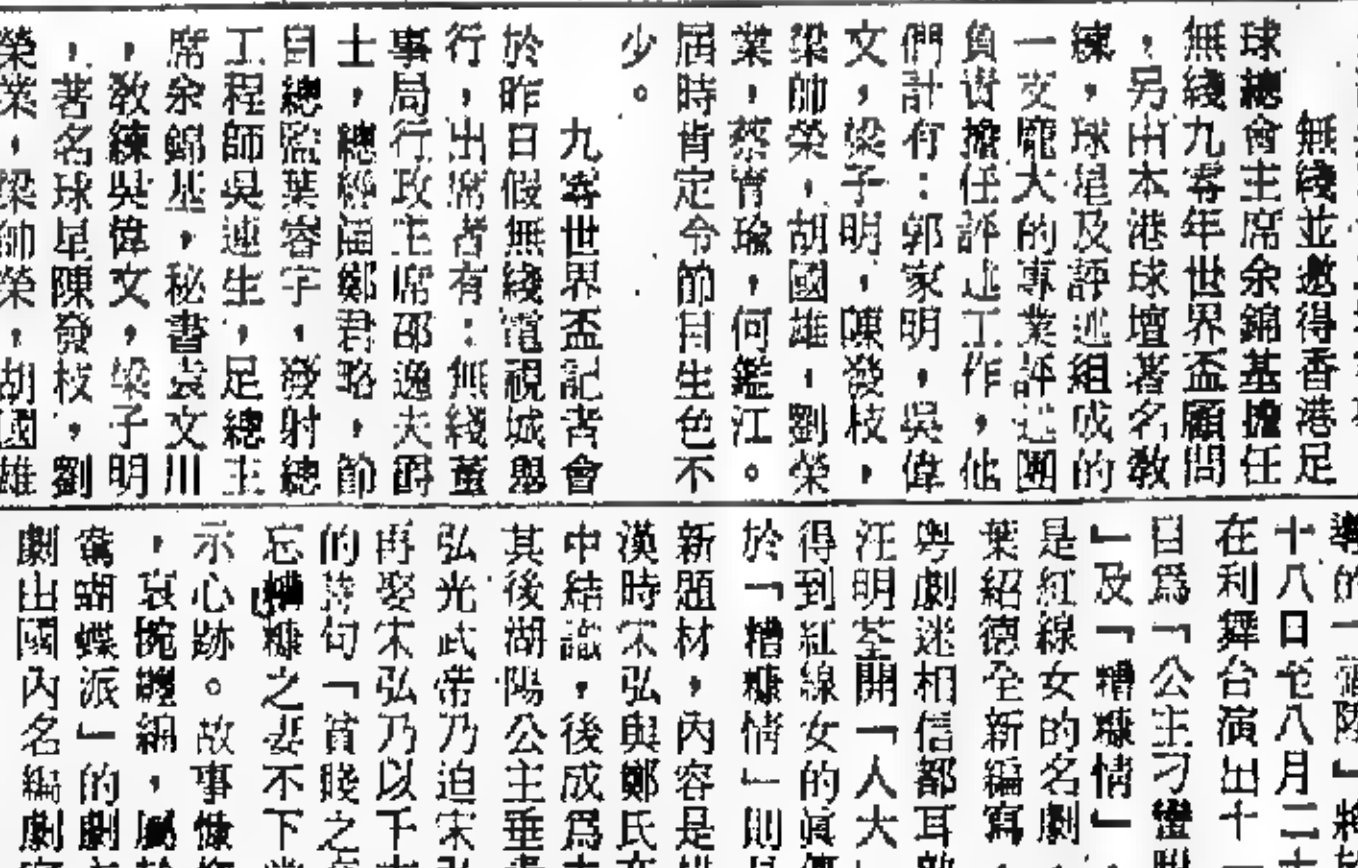 無綫並邀得香港足
球總會主席余錦基擔任
無綫九零年世界盃顧問
，另由本港球壇著名教
練，球星及評述組成的
一支龐大的專業評述團
負責擔任評述工作，他
們計有：郭家明，吳偉
文，梁子明，陳發枝，
梁帥榮，胡國雄，劉榮
業，蔡育瑜，何鑑江。
屆時肯定令節目生色不
少。
九零世界盃記者會
於昨日假無綫電視城舉
行，出席者有：無綫董
事局行政主席邵逸夫爵
士，總經理鄭君略，節
目總監葉容宇，發射總
工程師吳連生，足總主
席余錦基，秘書袁文川
，教練吳偉文，梁子明
，著名球星陳發枝，劉
榮業，梁帥榮，胡國雄
導的一
十八日至八月二十
在利舞台演出十
目為「公主刁蠻
」及「糟糠情」
是紅線女的名劇
葉紹德全新編寫
粵劇迷相信都耳
汪明荃開「人大
得到紅線女的眞傳
於「糟糠情」則是
新題材，內容是
漢時宋弘與鄭氏在
中結識，後成爲
其後湖陽公主垂
弘光武帝乃迫宋弘
再娶宋弘乃以千古
的詩句「貧賤之交
忘糟糠之妻不下堂
示心跡。故事悽
，哀惋纏綿，屬
鴛蝴蝶派」的劇
劇由國內名編劇家